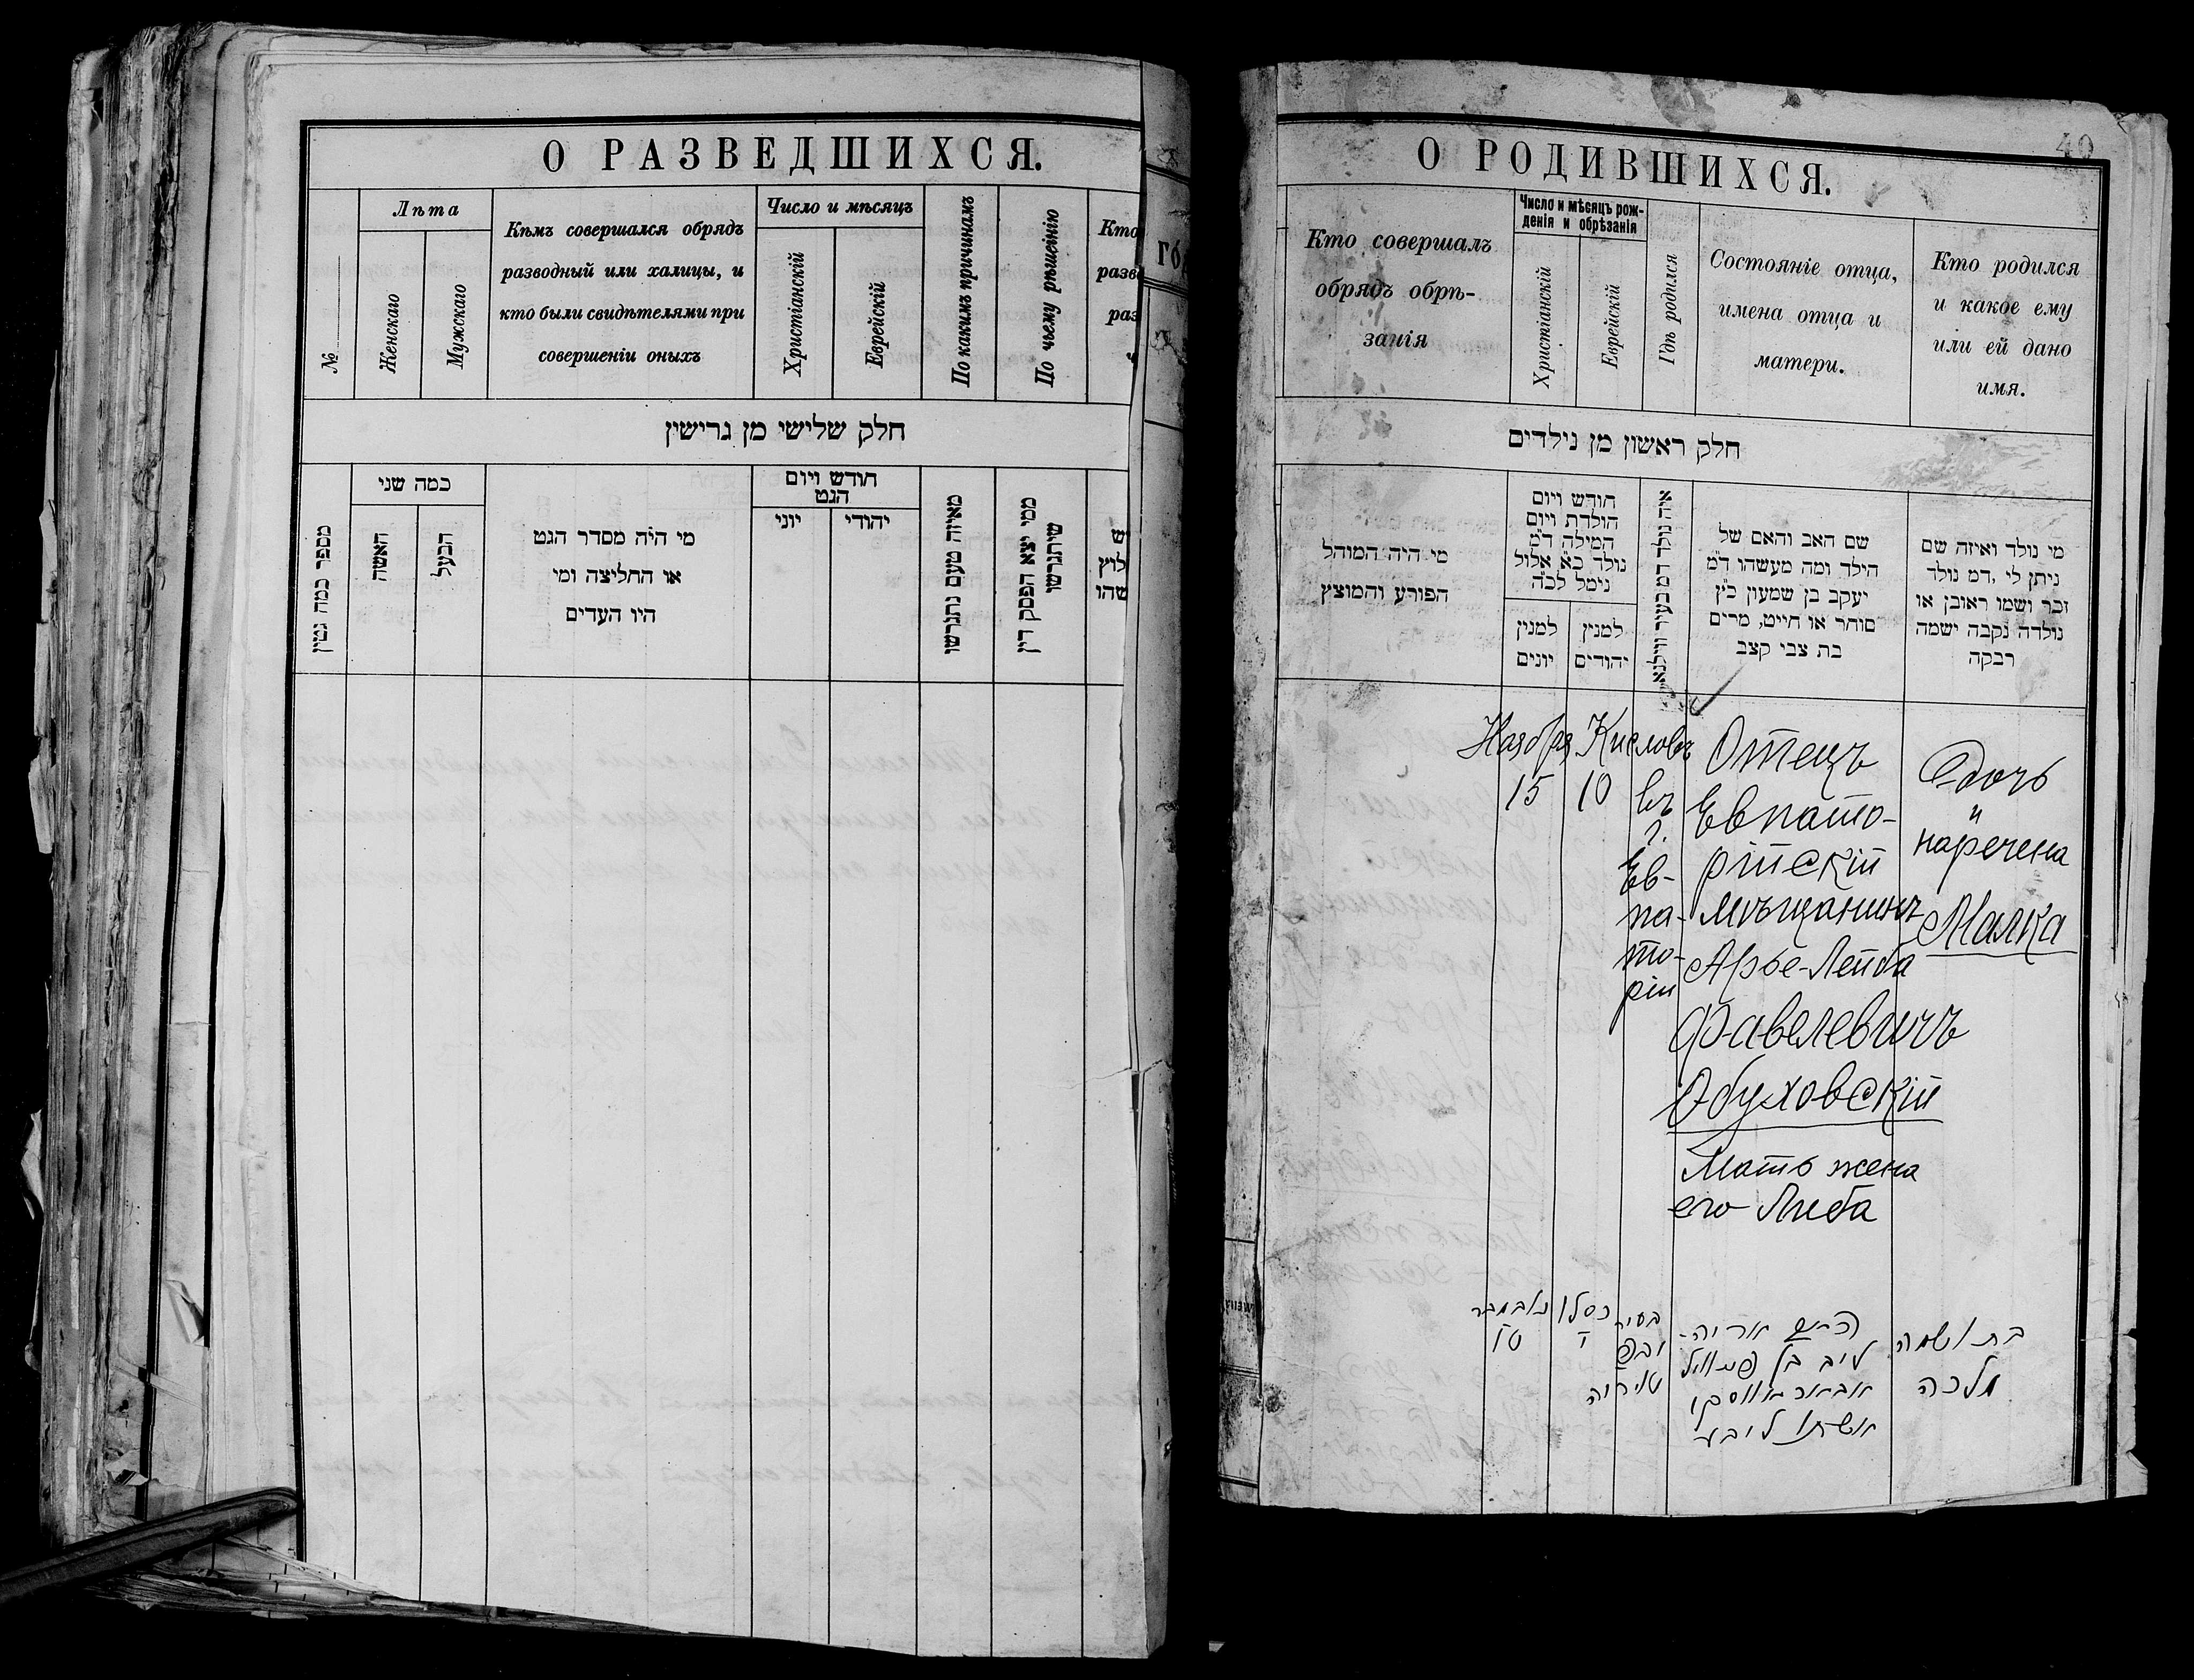 О РАЗВЕДШИХСЯ.
№
Лѣта
Женскаго
Мужскаго
Кѣмъ совершался обрядъ
разводный или халицы, и
кто были свидѣтелями при
совершеніи оныхъ
Число и мѣсяцъ
Христіанскій
Еврейскій
По какимъ причинамъ
По чьему рѣшеінію
Кто
разв
раз
חלק שלישי מן גרישין
מספר כמה גטין
כמה שני
האשה
הבעל
מי היה מסדר הגט
או החליצה ומי
היו העדים
חודש ויום
הגט
יוני
יהודי
מאיזה טעם נתגרשו
ממי יצא הפסק דין
שיתגרשו
40
О РОДИВШИХСЯ.
Кто совершалъ
обрядъ обрѣ-
занія
Число и мѣсяцъ рож-
денія и обрѣзанія
Христіанскій
Еврейскій
Гдѣ родился
Состояніе отца,
имена отца и
матери.
Кто родился
и какое ему
или ей дано
имя.
חלק ראשון מן נולדים
מי היה המוהל
הפורע והמוצץ
חודש ויום
הולדת ויום
המילה ד״מ
נולד כ״א אלול
נימל לכ״ה
למנין
יונים
למנין
יהודים
איה נולד דמ בעיר ווילנא
שם האב והאם של
הילד ומה מעשהו ד״מ
יעקב בן שמעון כ״ץ
סוחר או חייט, מרים
בת צבי קצב
מי נולד ואיזה שם
ניתן לי ,דמ נולד
זכר ושמו ראובן או
נולדה נקבה ישמה
רבקה
Ноября
15
Кисловъ
10
въ
г.
Ев-
па-
то-
ріи
Отецъ
Евпато-
рійскій
мѣщанинъ
Арье-Лейба
Фавелевичъ
Обуховскій
Мать жена
его Либа
Дочь
и
наречена
Малка
נאבמבר
טו
כסלו
י
בעיר
יבפ
טוריה
אריה-
ליב בן
אשתו ליבע
בת ושמה
מלכה